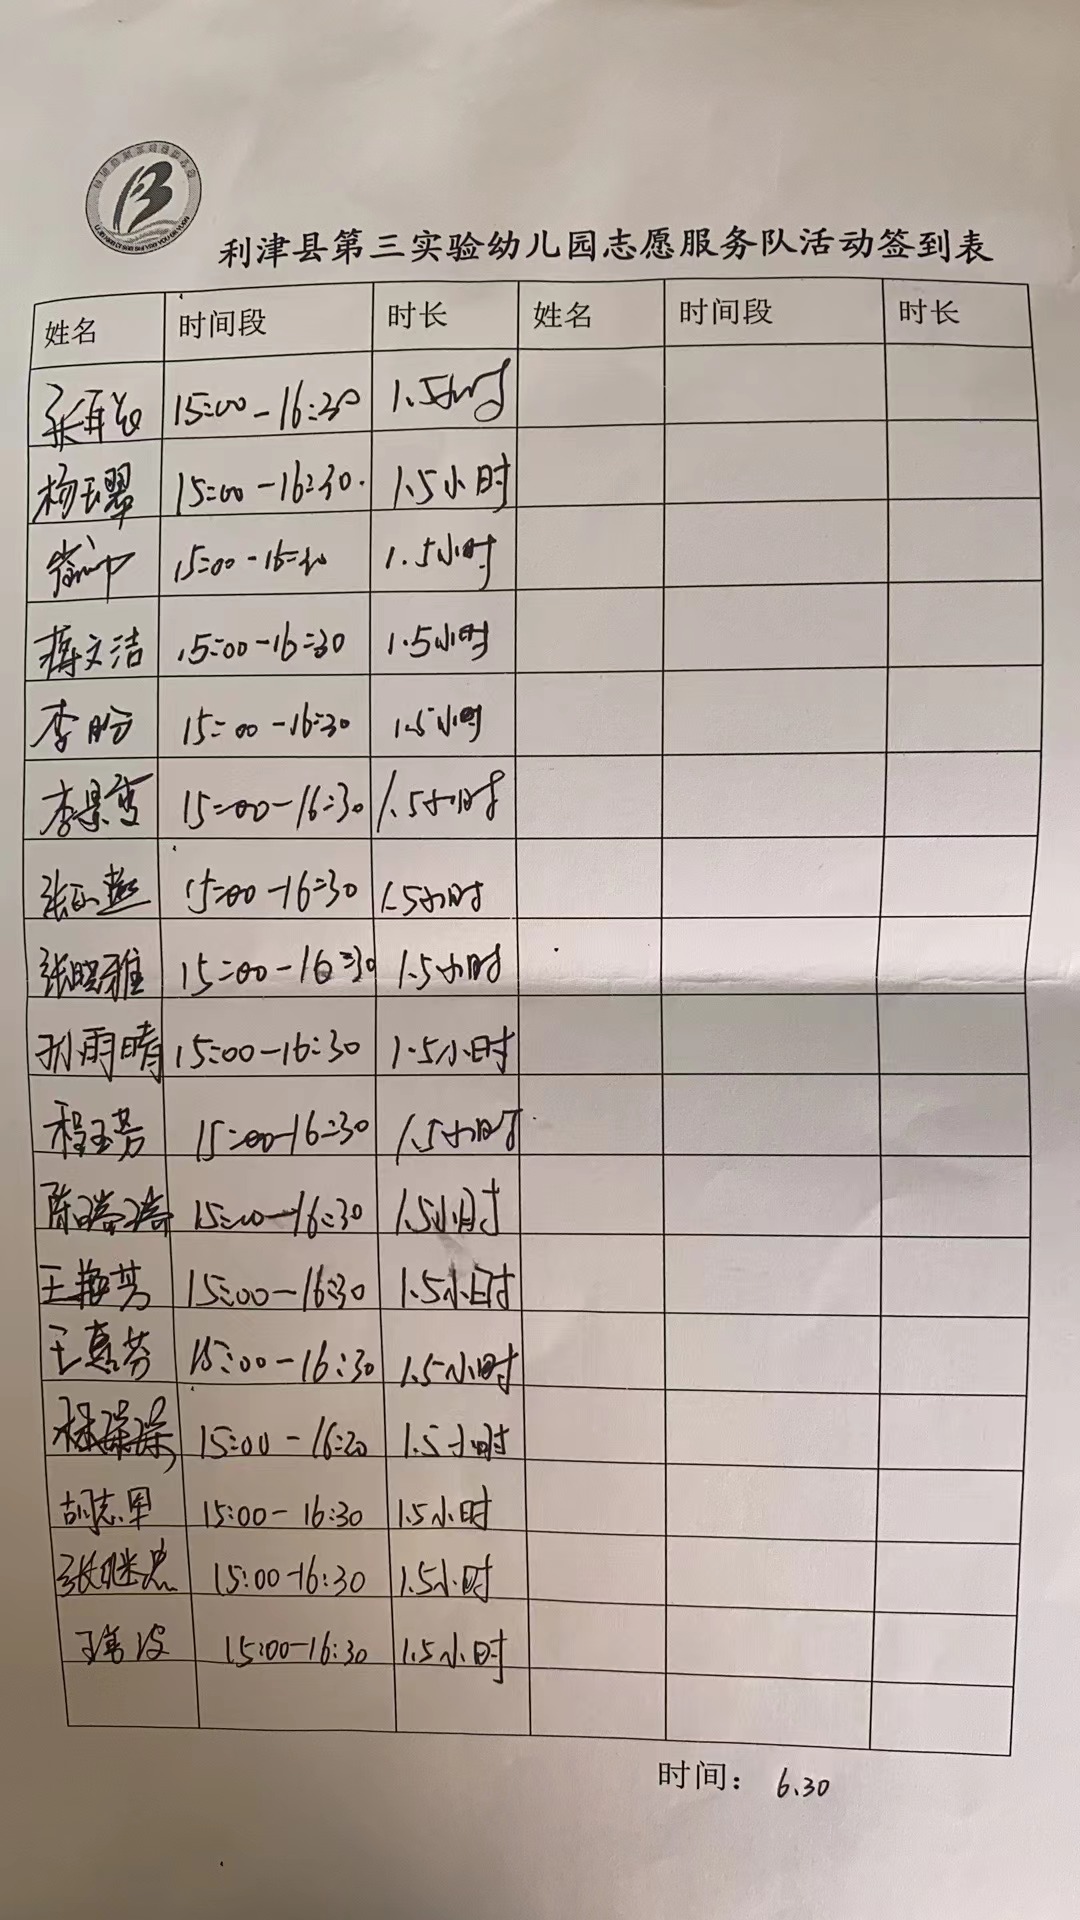 利津县第三实验幼儿园志愿服务队活动签到表
姓名 时间段 时长 姓名 时间段 时长
15:00-16:30 1.5小时
杨玉翠 15:00-16:30. 1.5小时
15:00-16:30 1.5小时
蒋文洁 15:00-16:30 1.5小时
李盼 15:00-16:30 1.5小时
李景雪 15:00-16:30 1.5小时
15:00-16:30 1.5小时
张晓雅 15:00-16:30 1.5小时
孙雨晴 15:00-16:30 1.5小时
程玉芳 15:00-16:30 1.5小时
陈瑞瑞 15:00-16:30 1.5小时
王艳芳 15:00-16:30 1.5小时
王嘉芬 15:00-16:30 1.5小时
林琛琛 15:00-16:20 1.5小时
胡志军 15:00-16:30 1.5小时
张继忠 15:00-16:30 1.5小时
15:00-16:30 1.5小时
时间： 6.30